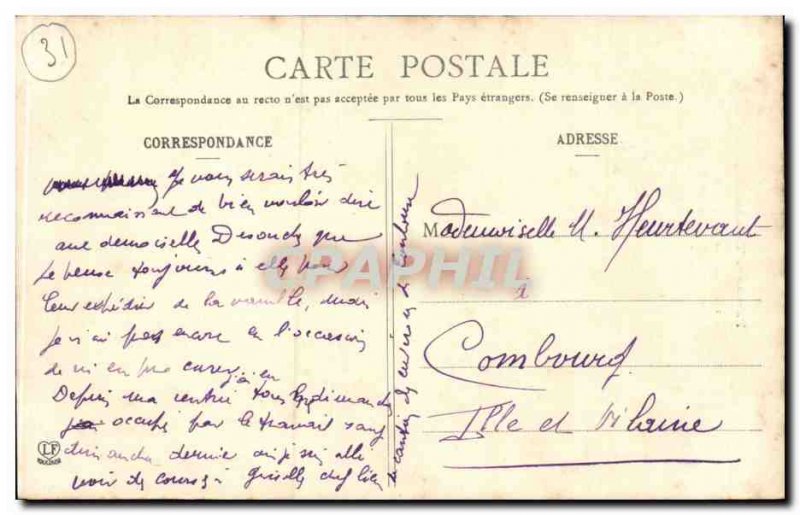 31
CARTE POSTALE
La Correspondance au recto n'est pas acceptée par tous les Pays étrangers. (Se renseigner à la Poste.)
CORRESPONDANCE
ADRESSE
Je vous serais très
reconnaissant de bien vouloir dire
aux demoiselles que
je pense toujours à elles pour
leur expédier de la vanille, mais
je n'ai pas encore eu l'occasion
de m'en procurer j'ai eu
Depuis ma rentrée tous les dimanches
occupé par le travail sauf
dimanche dernier où je suis allé
voir des courses à
Mademoiselle M. Heurtevant
à
Combourg
Ille et Vilaine
CPAPHIL
LF